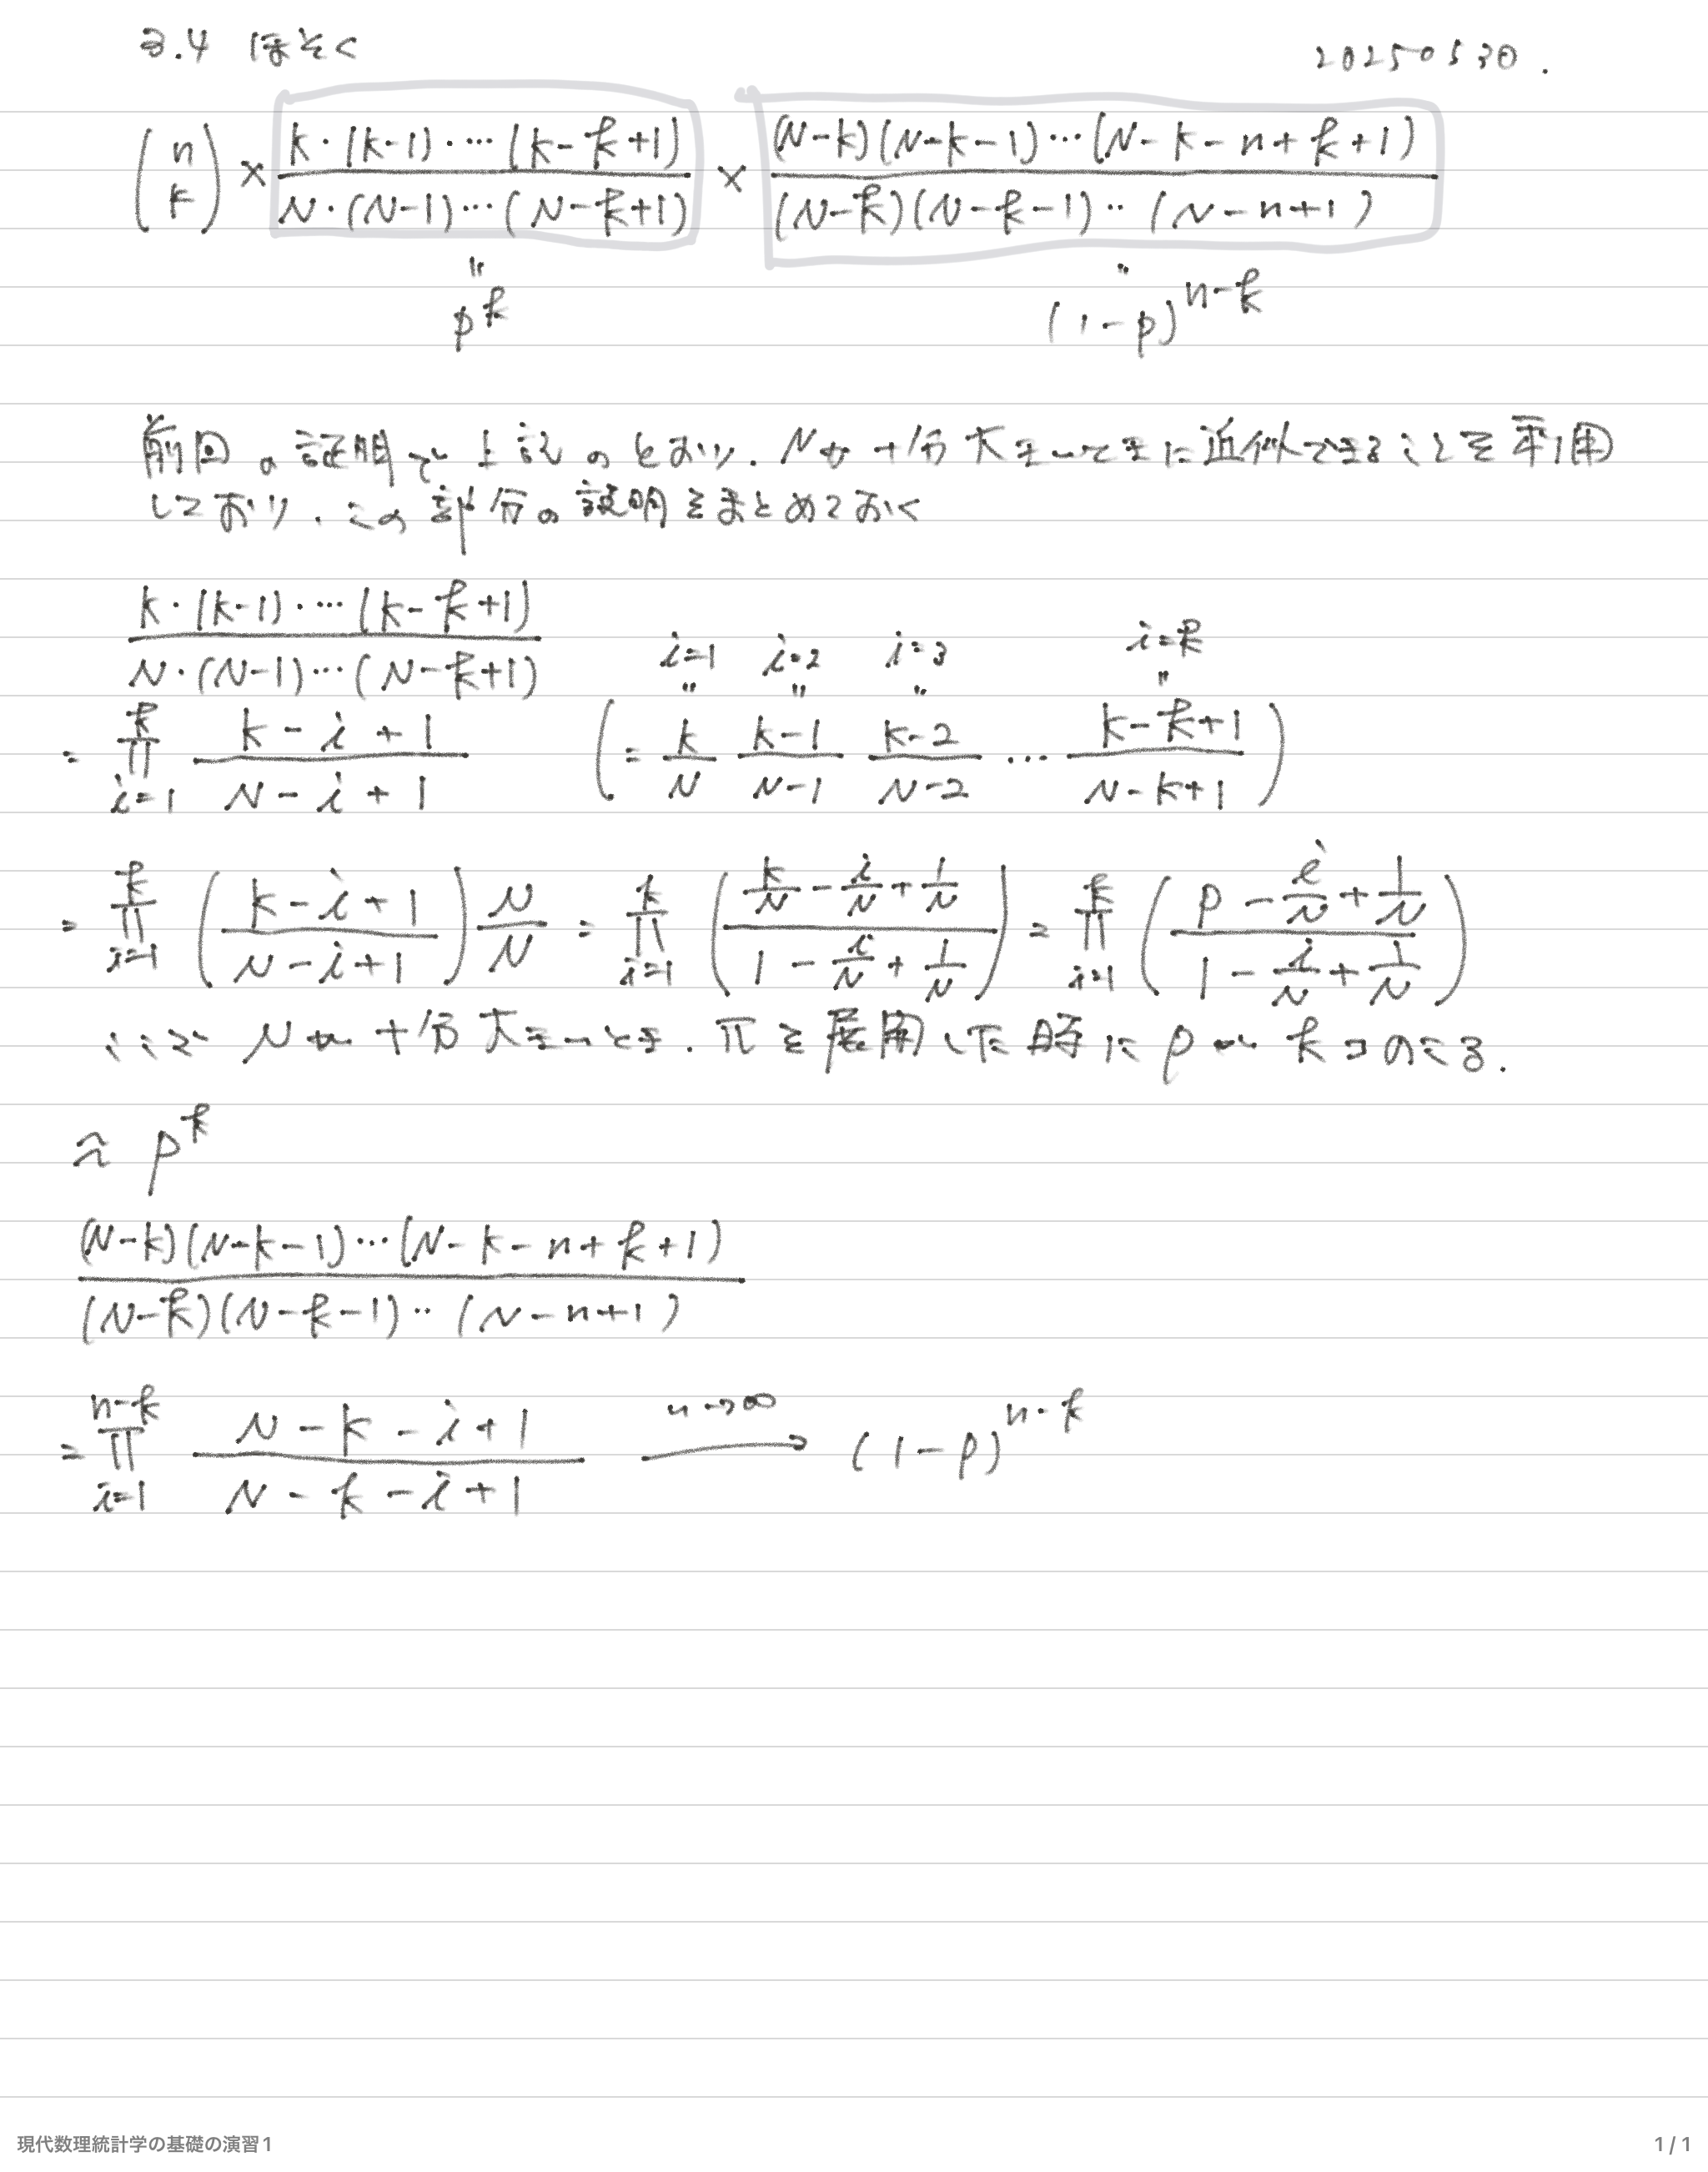 3.4 ほそく
20250530.
(n k) × K·(K-1)·…(K-k+1) / N·(N-1)…(N-k+1) × (N-K)(N-K-1)…(N-K-n+k+1) / (N-k)(N-k-1)‥(N-n+1)
〃 p^k 〃 (1-p)^{n-k}
前回の証明で上記のとおり. Nが十分大きいときに近似できることを利用
しており. この部分の説明をまとめておく
K·(K-1)·…(K-k+1) / N·(N-1)…(N-k+1)
i=1 i=2 i=3 i=k
〃 〃 〃 〃
= ∏_{i=1}^{k} (K-i+1)/(N-i+1) ( = K/N (K-1)/(N-1) (K-2)/(N-2) … (K-k+1)/(N-k+1) )
= ∏_{i=1}^{k} ( (K-i+1)/(N-i+1) ) N/N = ∏_{i=1}^{k} ( (K/N - i/N + 1/N) / (1 - i/N + 1/N) ) = ∏_{i=1}^{k} ( (p - i/N + 1/N) / (1 - i/N + 1/N) )
ここで Nが十分大きいとき. πを展開した時に pが kコのこる.
≈ p^k
(N-K)(N-K-1)…(N-K-n+k+1) / (N-k)(N-k-1)‥(N-n+1)
= ∏_{i=1}^{n-k} (N-K-i+1)/(N-k-i+1) n→∞ → (1-p)^{n-k}
現代数理統計学の基礎の演習1
1 / 1